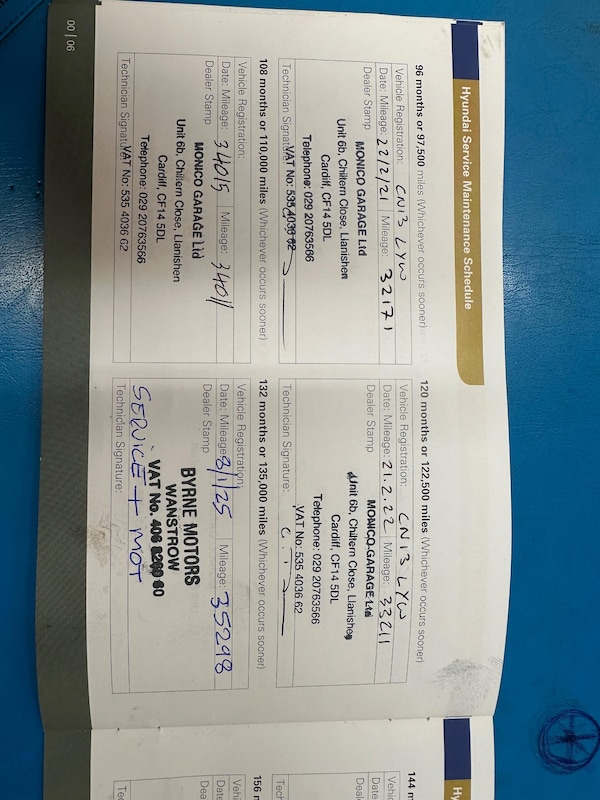 Hyundai Service Maintenance Schedule
96 months or 97,500 miles (Whichever occurs sooner)
Vehicle Registration: CN13 LYW
Date: Mileage: 22/2/21 Mileage: 32171
Dealer Stamp
MONICO GARAGE Ltd
Unit 6b, Chiltern Close, Llanishen
Cardiff, CF14 5DL
Telephone: 029 20763566
VAT No: 535 4036 62
Technician Signature:
108 months or 110,000 miles (Whichever occurs sooner)
Vehicle Registration:
Date: Mileage: 34015 Mileage: 34011
Dealer Stamp
MONICO GARAGE Ltd
Unit 6b, Chiltern Close, Llanishen
Cardiff, CF14 5DL
Telephone: 029 20763566
VAT No: 535 4036 62
Technician Signature:
00 | 06
120 months or 122,500 miles (Whichever occurs sooner)
Vehicle Registration: CN13 LYW
Date: Mileage: 21.2.22 Mileage: 33211
Dealer Stamp
MONICO GARAGE Ltd
Unit 6b, Chiltern Close, Llanishen
Cardiff, CF14 5DL
Telephone: 029 20763566
VAT No: 535 4036 62
Technician Signature:
132 months or 135,000 miles (Whichever occurs sooner)
Vehicle Registration:
Date: Mileage: 8/1/25 Mileage: 35298
Dealer Stamp
BYRNE MOTORS
WANSTROW
VAT No. 406 60
SERVICE + MOT
Technician Signature:
Hy
144 m
Vehic
Date
Dea
Tech
156 m
Vehi
Date
Dea
Tec